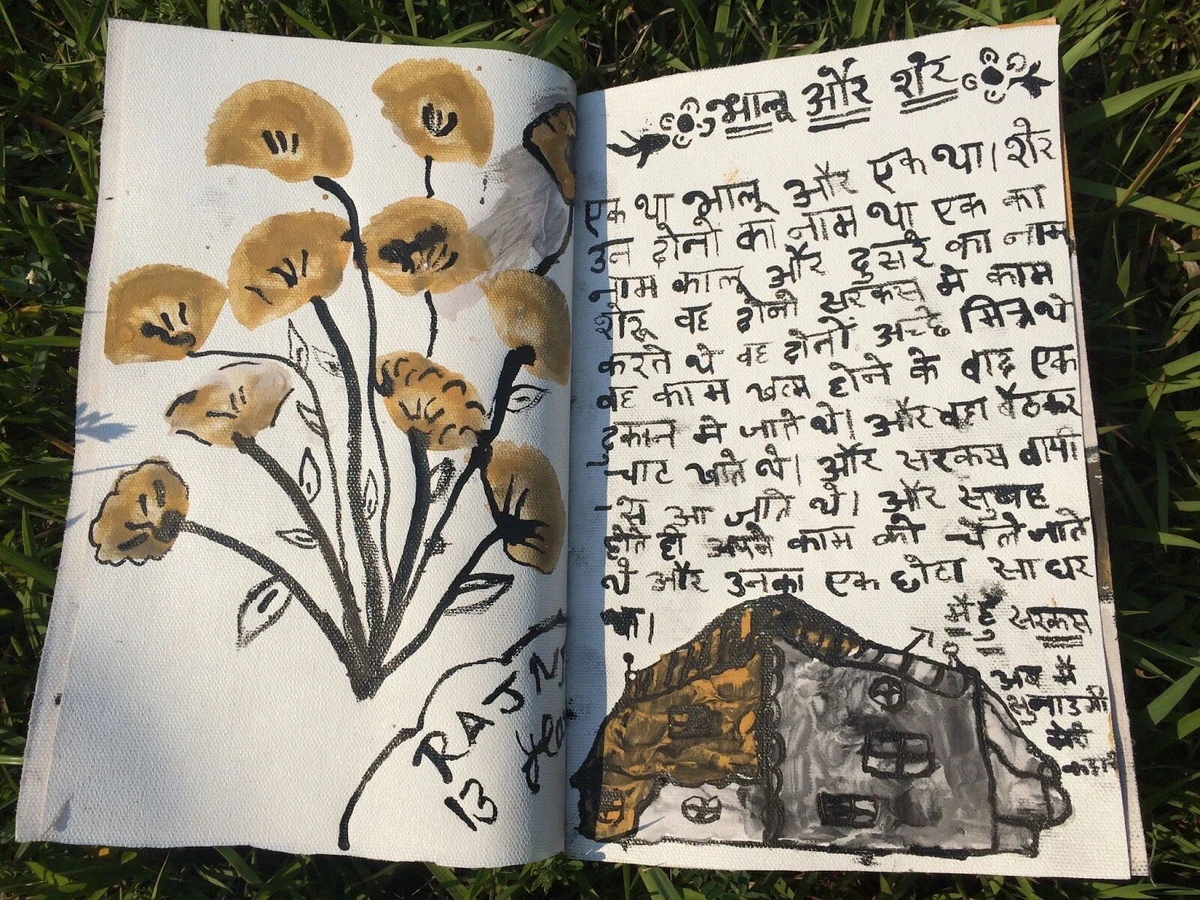 RAJN
13 Yea
भालू और शेर
एक था भालू और एक था। शेर
उन दोनो का नाम था एक का
नाम कालू और दुसरे का नाम
शेरू वह दोनो सरकस मे काम
करते थे वह दोनों अच्छे मित्र थे
वह काम खत्म होने के बाद एक
दुकान मे जाते थे। और वहा बैठकर
चाट खाते थे। और सरकस वापी
से आ जाते थे। और सुबह
होते ही अपने काम को चले जाते
थे और उनका एक छोटा सा घर
था।
मैं हु सरकस
अब मैं
सुनाउगी
मेरी
कहानी